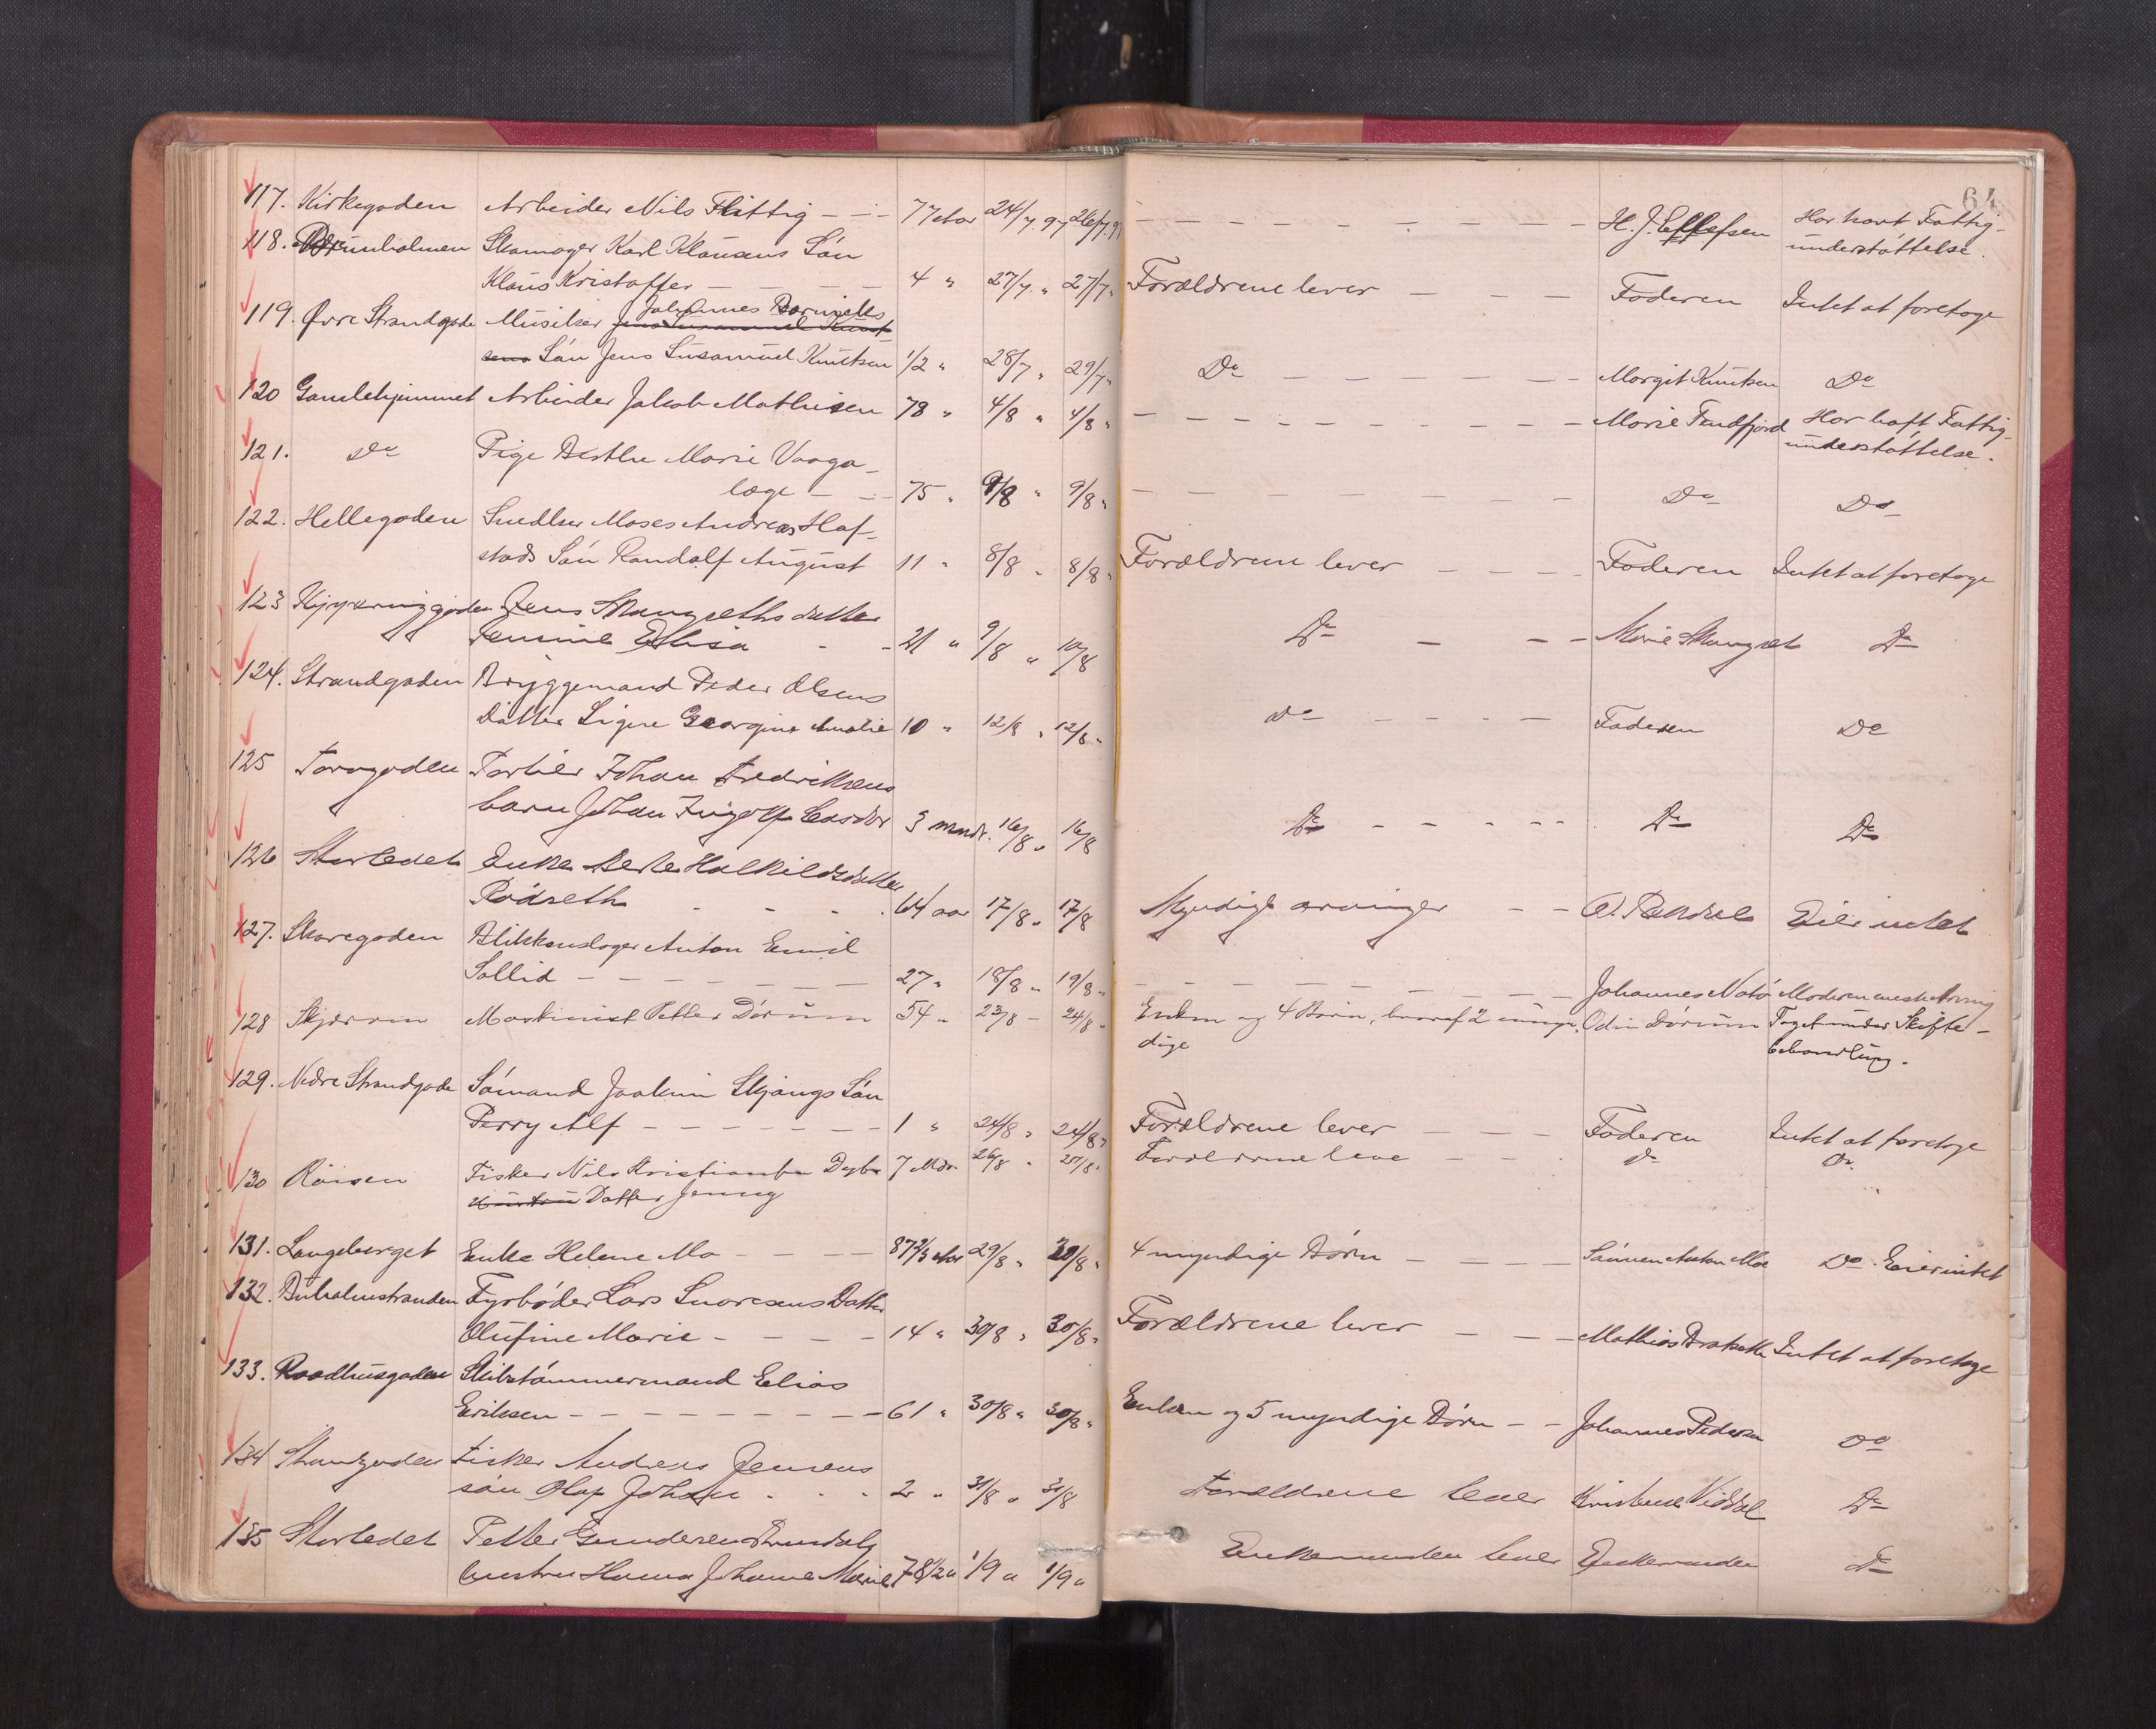 64
117. Kirkegaden Arbeider Nils Flittig — — 77 Aar 24/7 97 26/7 97 — — — H. J. Ellefsen Har havt Fattig-
understøttelse.
118. holmen Skomager Karl Klausens Søn
Klaus Kristoffer — — — 4 " 27/7 " 27/7 " Forældrene lever — — — Faderen Intet at foretage
119. Øvre Strandgade Musiker Johannes
Søn Jens Knutsen 1/2 " 28/7 " 29/7 " Do — — — Margit Knutsen Do
120 Gamlehjemmet Arbeider Jakob Mathisen 78 " 4/8 " 4/8 " — — — Marie Har haft Fattig-
understøttelse.
121. Do Pige Berthe Marie Vaaga-
læge — — 75 " 9/8 " 9/8 " — — — Do Do
122. Hellegaden Snedker Moses Andreas Haf-
stads Søn Randolf August 11 " 8/8 " 8/8 " Forældrene lever — — — Faderen Intet at foretage
123 Jens Mangseths datter
Jensine Elisa — — 21 " 9/8 " 10/8 Do — — — Marie Mangseth Do
124. Strandgaden Bryggemand Peder Olsens
Datter Signe Georgine Amalie 10 " 12/8 " 12/8 " Do — — — Faderen Do
125 Torvgaden Portier Johan Fredriksens
barn Johan Ingolf 3 mndr. 16/8 " 16/8 Do — — — Do Do
126 Storledet Enke Berte Halkildsdatter
Rødseth — — — 64 aar 17/8 " 17/8 Myndige arvinger — — Eier intet
127. Skaregaden Blikkenslager Anton Emil
Sollid — — — 27 " 18/8 " 19/8 " — — — Johannes Moderen eneste Arving
128 Maskinist Petter Dørum 54 " 23/8 — 24/8 " Enken og 4 Børn, hvoraf 2 umyn- Odin Dørum Taget under Skifte-
dige behandling.
129. Nedre Strandgade Sømand Joakim Skjongs Søn
Perry Alf — — — 1 " 24/8 " 24/8 " Forældrene lever — — — Faderen Intet at foretage
130 Røisen Fisker Nils Kristian Dyb 7 Mdr. 26/8 " 27/8 " Forældrene leve — — Do Do
Datter Jenny
131. Langeberget Enke Helene Mo — — — 87 2/3 Aar 29/8 " 30/8 " 4 myndige Børn — — — Sønnen Anton Moe Do. Eier intet
132. Buholmstranden Fyrbøder Lars Datter
Olufine Marie — — — 14 " 30/8 " 30/8 " Forældrene lever — — — Mathias Intet at foretage
133. Raadhusgaden Skibstømmermand Elias
Eriksen — — — 61 " 30/8 " 30/8 " Enken og 5 myndige Børn — — Johannes Pedersen Do
134 Strandgaden Fisker Andreas Jensens
søn Olaf Johan — — — 2 " 31/8 " 31/8 Forældrene lever Viddal Do
135 Storledet Petter Gundersen
hustru Hanna Johanne Marie 78 1/2 " 1/9 " 1/9 " Enkemanden lever Enkemanden Do